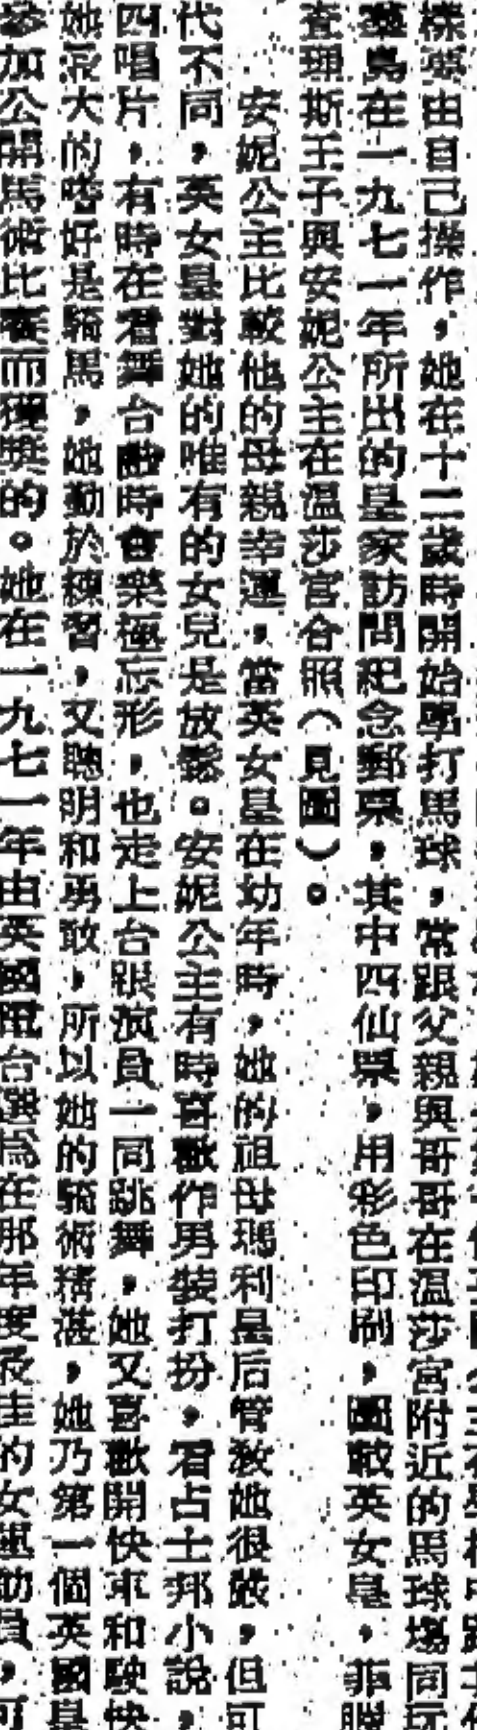 樣要由自己操作，她在十二歲時開始學打馬球，常跟父親與哥哥在溫莎宮附近的馬球塲同玩
羣島在一九七一年所出的皇家訪問紀念郵票，其中四仙票，用彩色印刷，圖載英女皇，菲聯
查理斯王子與安妮公主在溫莎宮合照（見圖）。
安妮公主比較他的母親幸運，當英女皇在幼年時，她的祖母瑪利皇后管教她很嚴，但可
代不同，英女皇對她的唯有的女兒是放鬆。安妮公主有時喜歡作男裝打扮，看占士邦小說，
四唱片，有時在看舞台劇時會樂極忘形，也走上台跟演員一同跳舞，她又喜歡開快車和駛快
她最大的嗜好是騎馬，她勤於練習，又聰明和勇敢，所以她的騎術精湛，她乃第一個英國皇
參加公開馬術比賽而獲獎的。她在一九七一年由英國電台選為在那年度最佳的女運動員，可